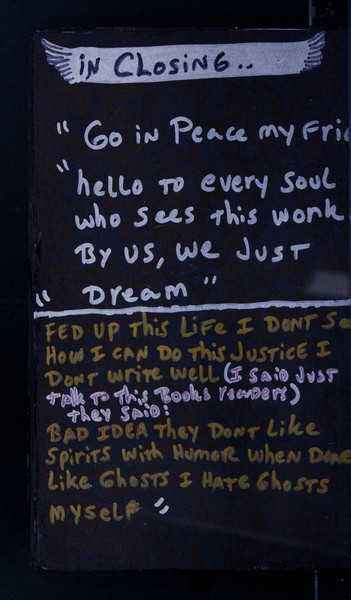 IN CLOSING..
" GO IN Peace my Frie
"hello TO every Soul
who sees this work
By US, we JUST
" Dream "
FED UP This LiFe I DONT Se
HOW I CAN DO This JUSTICE I
DONT WRITE Well (I SAID JUST
TALK TO This Books readers)
They SAID:
BAD IDEA They DONT Like
Spirits with HUMOR WHEN DONE
Like GHOSTS I HATE GHOSTS
MYSELF "